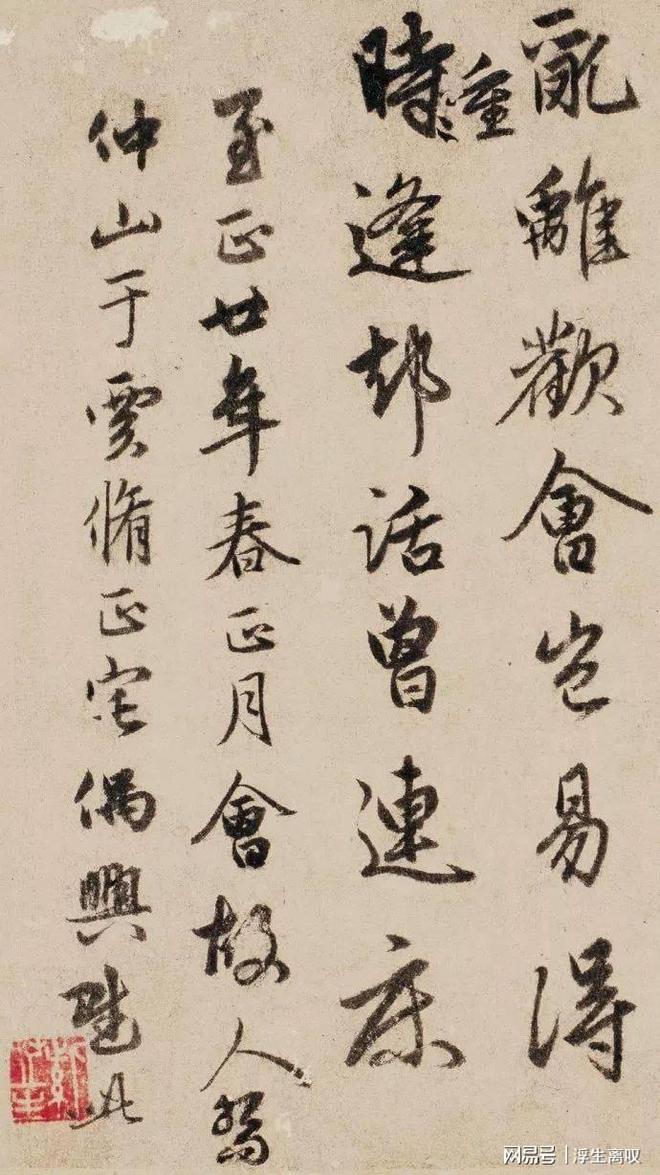 亂離歡會豈易得
時重逢却話曾連床
至正廿年春正月會故人
仲山于賈脩正宅偶興賦此
网易号 | 浮生离叹